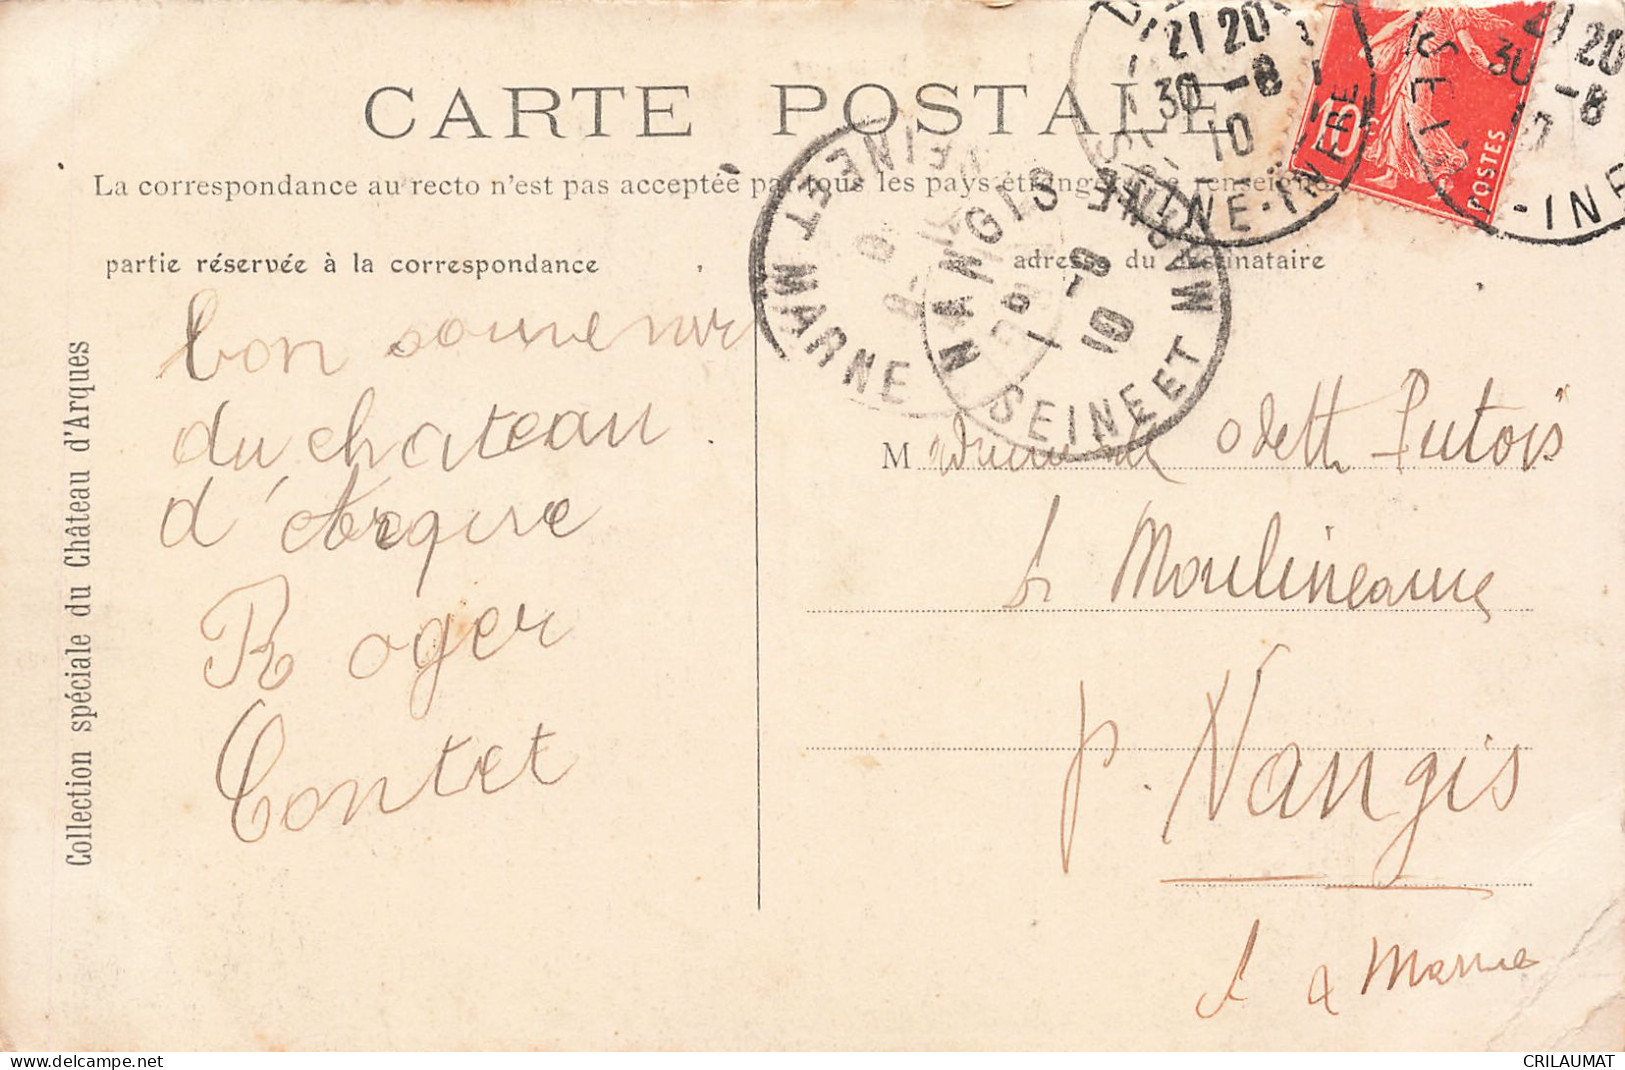 CARTE POSTALE
La correspondance au recto n'est pas acceptée par tous les pays étrangers
partie réservée à la correspondance
adresse du destinataire
Collection spéciale du Château d'Arques
bon souvenir
du chateau
d'Arque
Roger
Contet
M Odette Putois
Moulineaux
p. Nangis
S & Marne
21 20
30 -8
10
SEINE-INFRE
21 20
30 -8
10
SEINE-INFRE
10
POSTES
NANGIS
1 -9
10
SEINE ET MARNE
SEINE ET MARNE
delcampe.net
CRILAUMAT